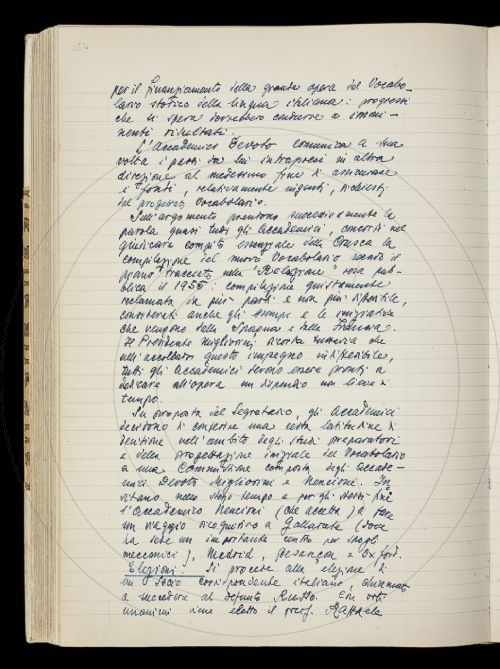 per il finanziamento della grande opera del Vocabo-
lario storico della lingua italiana: progressi
che si spera dovrebbero condurre a immi-
nenti risultati.
L'Accademico Devoto comunica a sua
volta i passi da lui intrapresi in altra
direzione al medesimo fine di assicurare
i fondi, relativamente ingenti, richiesti
dal progettato Vocabolario.
Sull'argomento prendono successivamente la
parola quasi tutti gli Accademici, concordi nel
giudicare compito essenziale della Crusca la
compilazione del nuovo Vocabolario secondo il
piano tracciato nella "Relazione" resa pub-
blica il 1955: compilazione giustamente
reclamata da più parti e non più differibile,
considerati anche gli esempi e le iniziative
che vengono dalla Spagna e dalla Francia.
Il Presidente Migliorini ricorda tuttavia che
nell'accollarsi questo impegno indifferibile,
tutti gli Accademici devono essere pronti a
dedicare all'opera un dispendio non lieve di
tempo.
Su proposta del Segretario, gli Accademici
decidono di conferire una certa latitudine di
decisione nell'ambito degli studi preparatori
e della progettazione iniziale del Vocabolario
a una Commissione composta degli Accade-
mici Devoto Migliorini e Nencioni. In-
vitano nello stesso tempo e per gli stessi fini
l'Accademico Nencioni (che accetta) a fare
un viaggio ricognitivo a Gallarate (dove
ha sede un importante centro per spogli
meccanici), Madrid, Besançon e Oxford.
Elezioni: Si procede alla elezione di
un Socio corrispondente italiano, chiamato
a succedere al defunto Russo. Con voti
unanimi viene eletto il prof. Raffaele